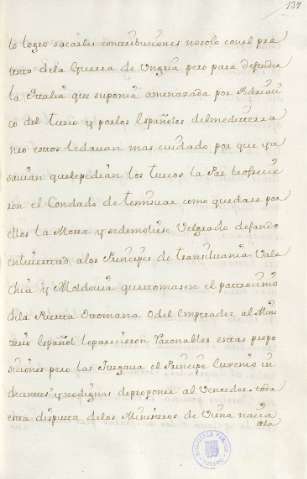 137
lo logro sacarles contribuciones no solo con el pre
texto de la Guerra de Ungria pero para defender
la Italia que suponia amenazada por el Adriati
co del turco y por los Españoles del mediterra
neo estos le davan mas cuidado por que ya
savian que le pedian los turcos la Paz le ofrecie
ron el Condado de temisuar como quedase por
ellos la Morea y se demoliese Velgrado dejando
en livertad a los Principes de transilvania Vala
chia y Moldavia que tomasen el patrocinio
de la Puerta Otomana o del Emperador al Mini
sterio Español le parecieron razonables estas propo
siciones pero las Juzgava el Principe Eugenio in
decentes y no dignas de proponer al Vencedor toda
esta disputa de los Ministros de Viena nacia